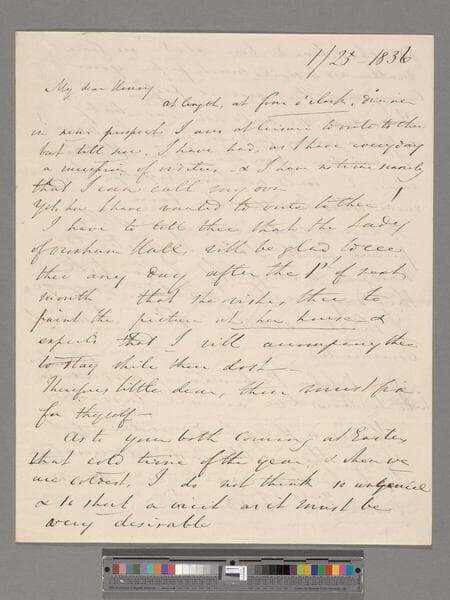 1/25 - 1836
My dear Henry
at length, at four o'clock, dinner
in near prospect, I am at leisure to write to thee
but till now, I have had, as I have every day
a succession of visitors - & I have not time scarcely
that I can call my own
Yet how I have wanted to write to thee!
I have to tell thee that the Lady
of Hall, will be glad to see
thee any day after the 1st of next
month that she wishes thee to
paint the picture at her house &
expects that I will accompany thee
to stay while thou dost -
Therefore little dear, thou must fix
for thyself -
As to your both coming at Easter
that cold time of the year, & when we
are coldest, I do not think so
& so short a visit as it must be
very desirable